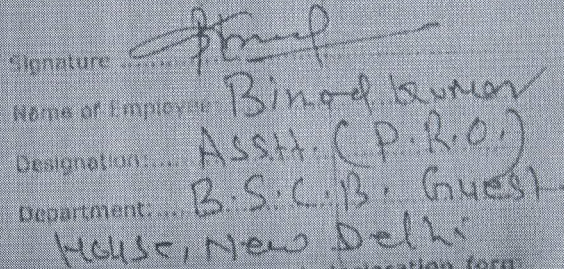 Signature ............
Name of Employee: Binod Kumar
Designation:.... Asstt. (P.R.O.)
Department:.... B.S.C.B. Guest
House, New Delhi
form